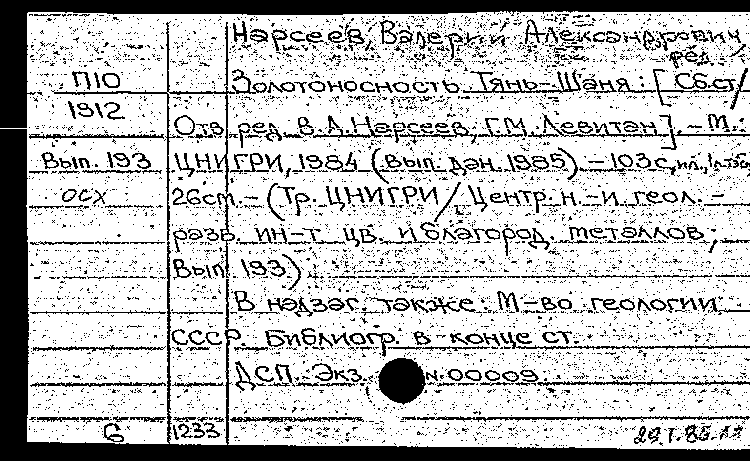 Нарсеев, Валерий Александрович,
ред.
П10
Золотоносность Тянь-Шаня: [Сб.ст./
1912
Отв. ред. В.А.Нарсеев, Г.М. Левитан]. - М.:
Вып. 193 ЦНИГРИ, 1984 (вып. дан. 1985). - 103с, ил.,
осх 26см. - (Тр. ЦНИГРИ / Центр. н.-и геол. -
разв. ин-т цв. и благород. металлов;
Вып. 193)
В надзаг. также: М-во геологии
СССР. Библиогр. в конце ст.
ДСП. Экз. N 00009.
6 1233